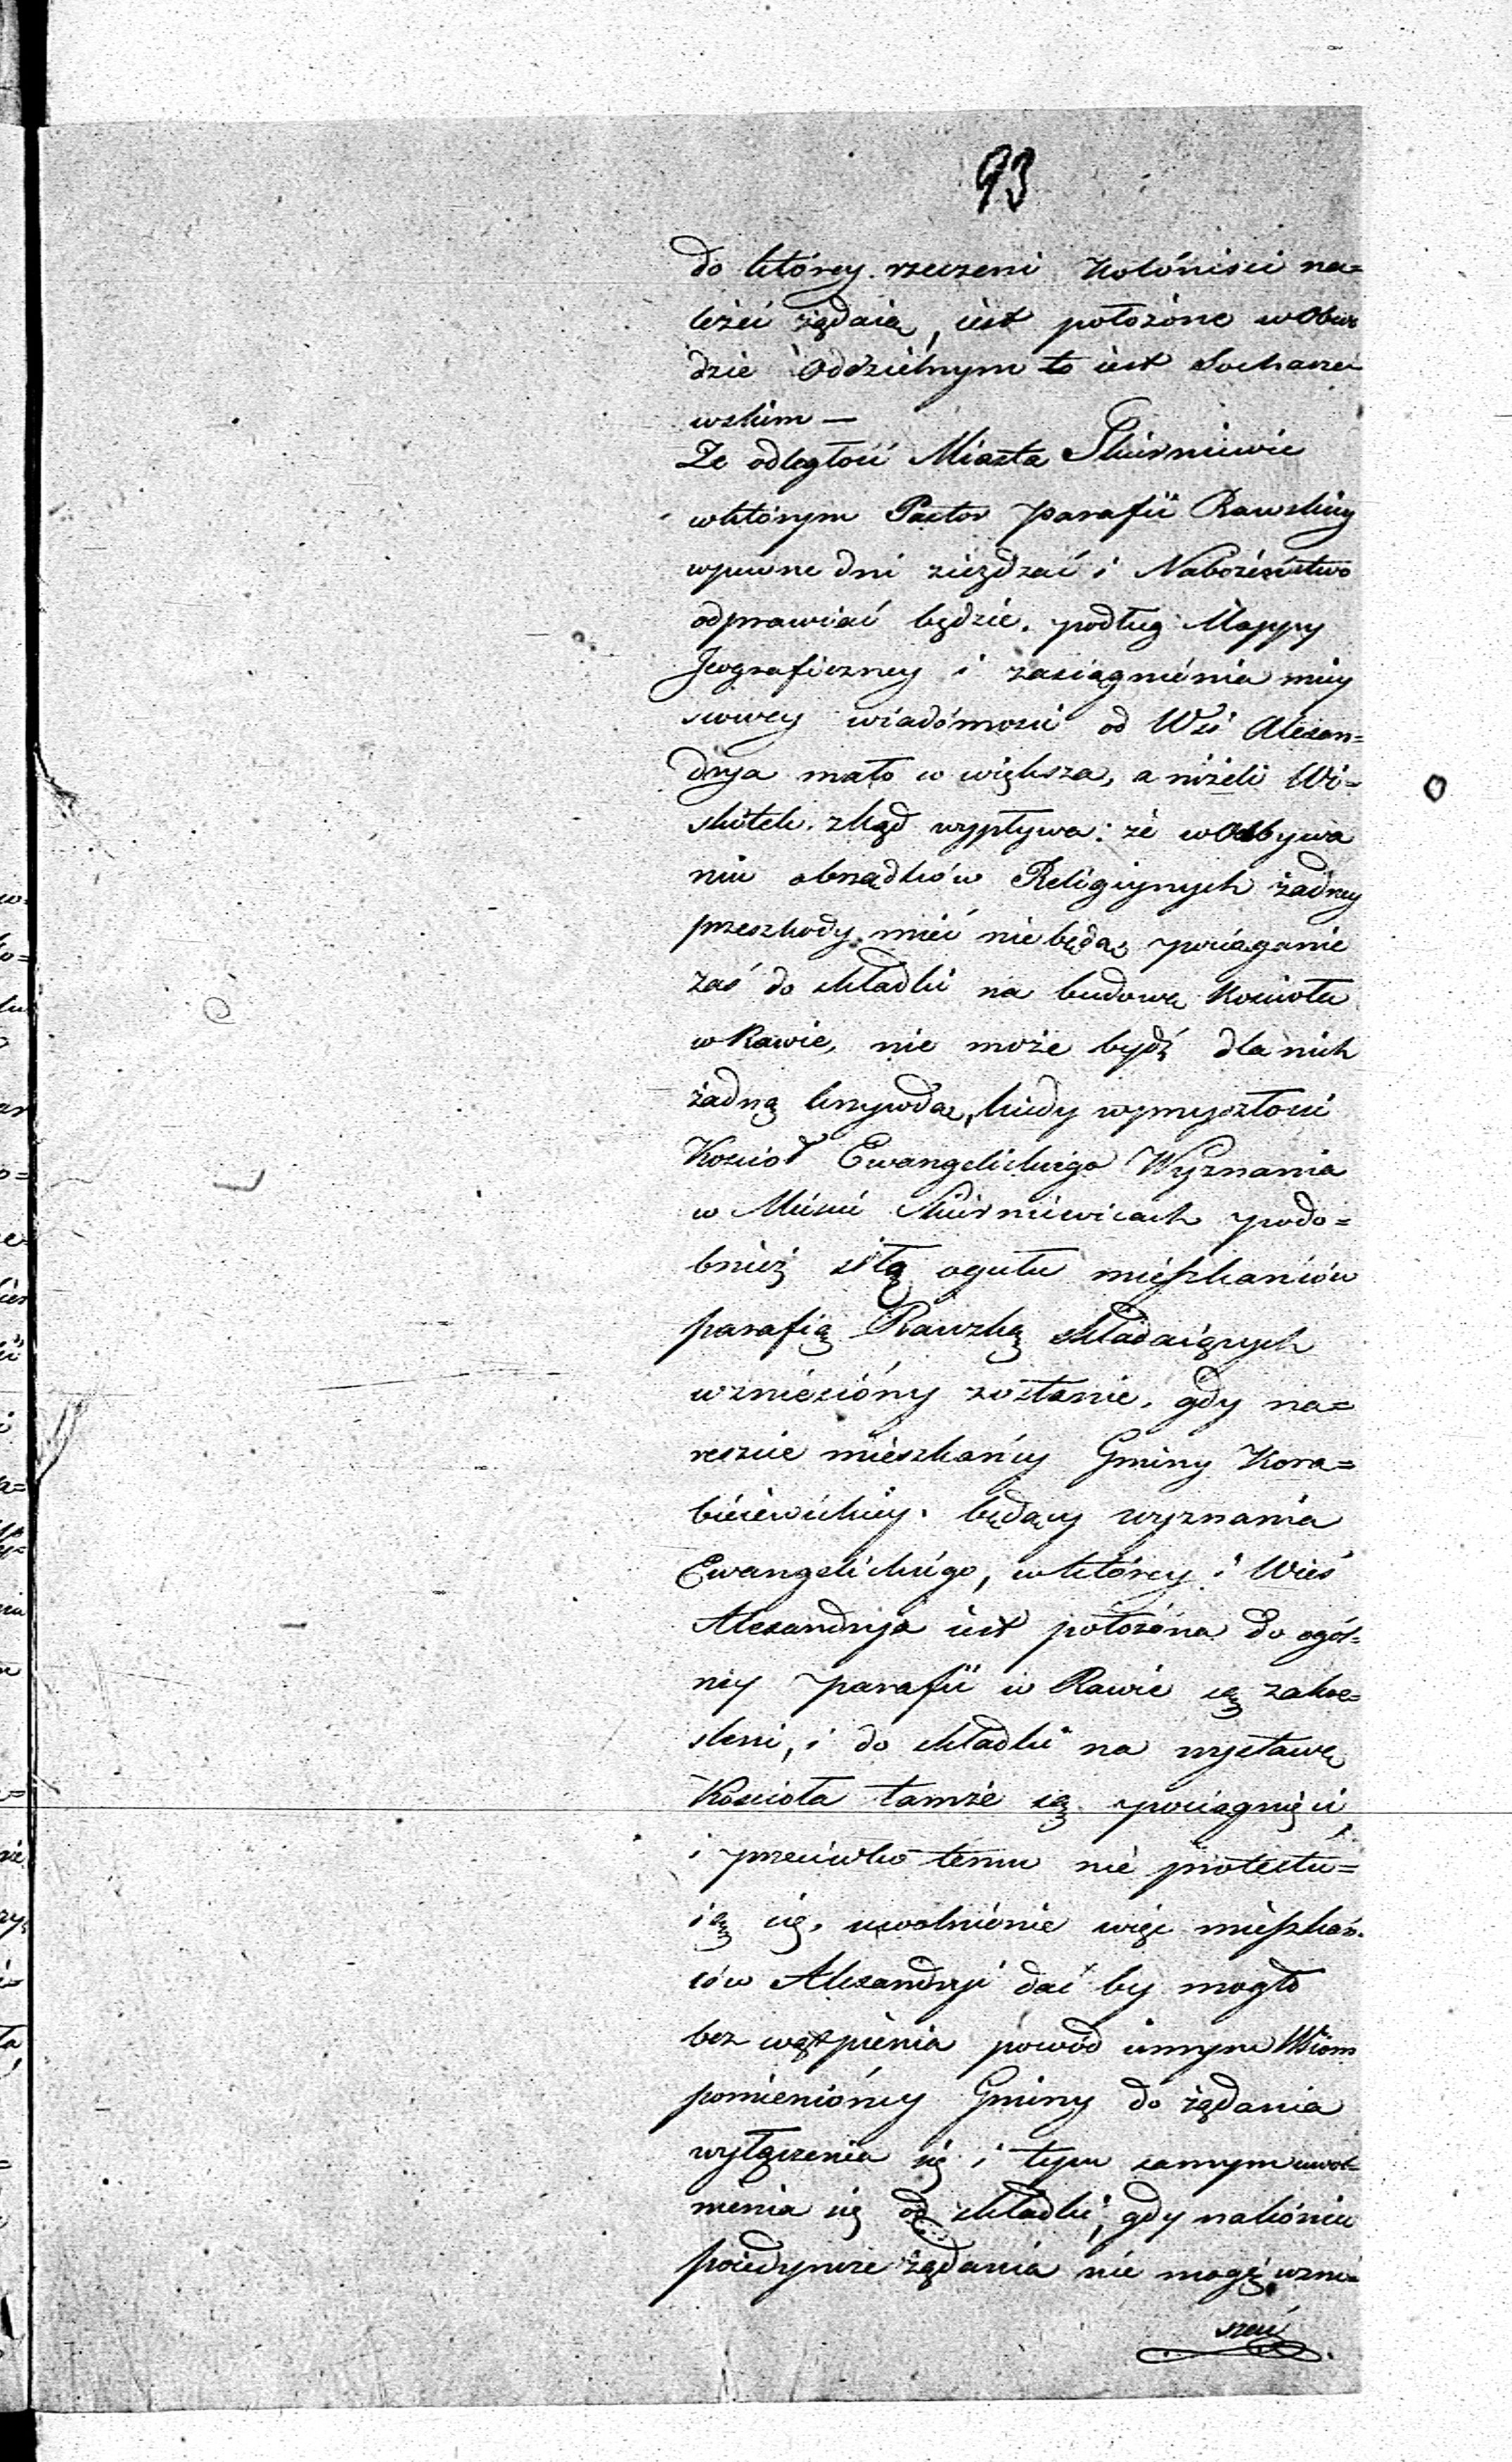 93
do którey rzeczeni Kolóniści na=
leżeć żądaią, iest położóne w Obwo
dzie Oddzielnym to iest Sochacze
wskim —
Że odległość Miasta Skierniewic
w którym Pastor parafii Rawskiey
w pewne dni zieżdzać i Nabożeństwo
odprawiać będzie, podług Mappy
Jeograficzney i zasiągnienia miey
scowey wiadómości od Wsi Alexan=
dryа mało co większa, a niżeli Wi=
skitek. zkąd wypływa: że w Odbywa
niu obrządków Religiynych żadney
przeszkody mieć nie będą, pociąganie
zaś do składki na budowę Kościoła
w Rawie, nie może bydź dla nich
żadną krzywdą, kiedy w przyszłości
Kościoł Ewangelickiego Wyznania
w Mieście Skierniewicach podo=
bnież siłą ogułu mieszkańców
parafią Rawską składaiących
wzniesióny zostanie, gdy na=
reszcie mieszkańcy Gminy Kora=
biewickiey będący wyznania
Ewangelickiego, w którey i Wieś
Alexandrya iest położóna do ogól=
ney parafii w Rawie są zakre=
śleni, i do składki na wystawę
Kościoła tamże są pociągnięci,
i przeciwko temu nie protestu=
ią się, uwolnienie więc mieszkań=
ców Alexandryi dać by mogło
bez wątpienia powód innym Wsiom
pomienióney Gminy do żądania
wyłączenia się i tym samym uwol=
nienia się od składki, gdy nakóniec
poiedyncze żądania nie mogą wzru=
szać